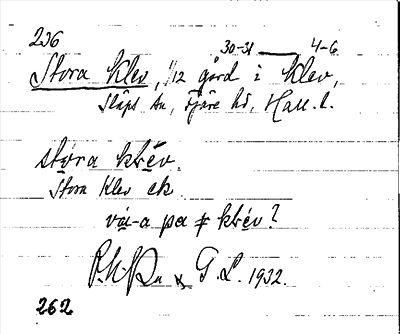 236
30-31 — 4-6
Stora Klev, 1/12 gård i Klev,
Släps sn, Fjäre hd, Hall. l.
stóra klév.
Stora Klev ek
vá-a pa klév?
G. L. 1932.
262